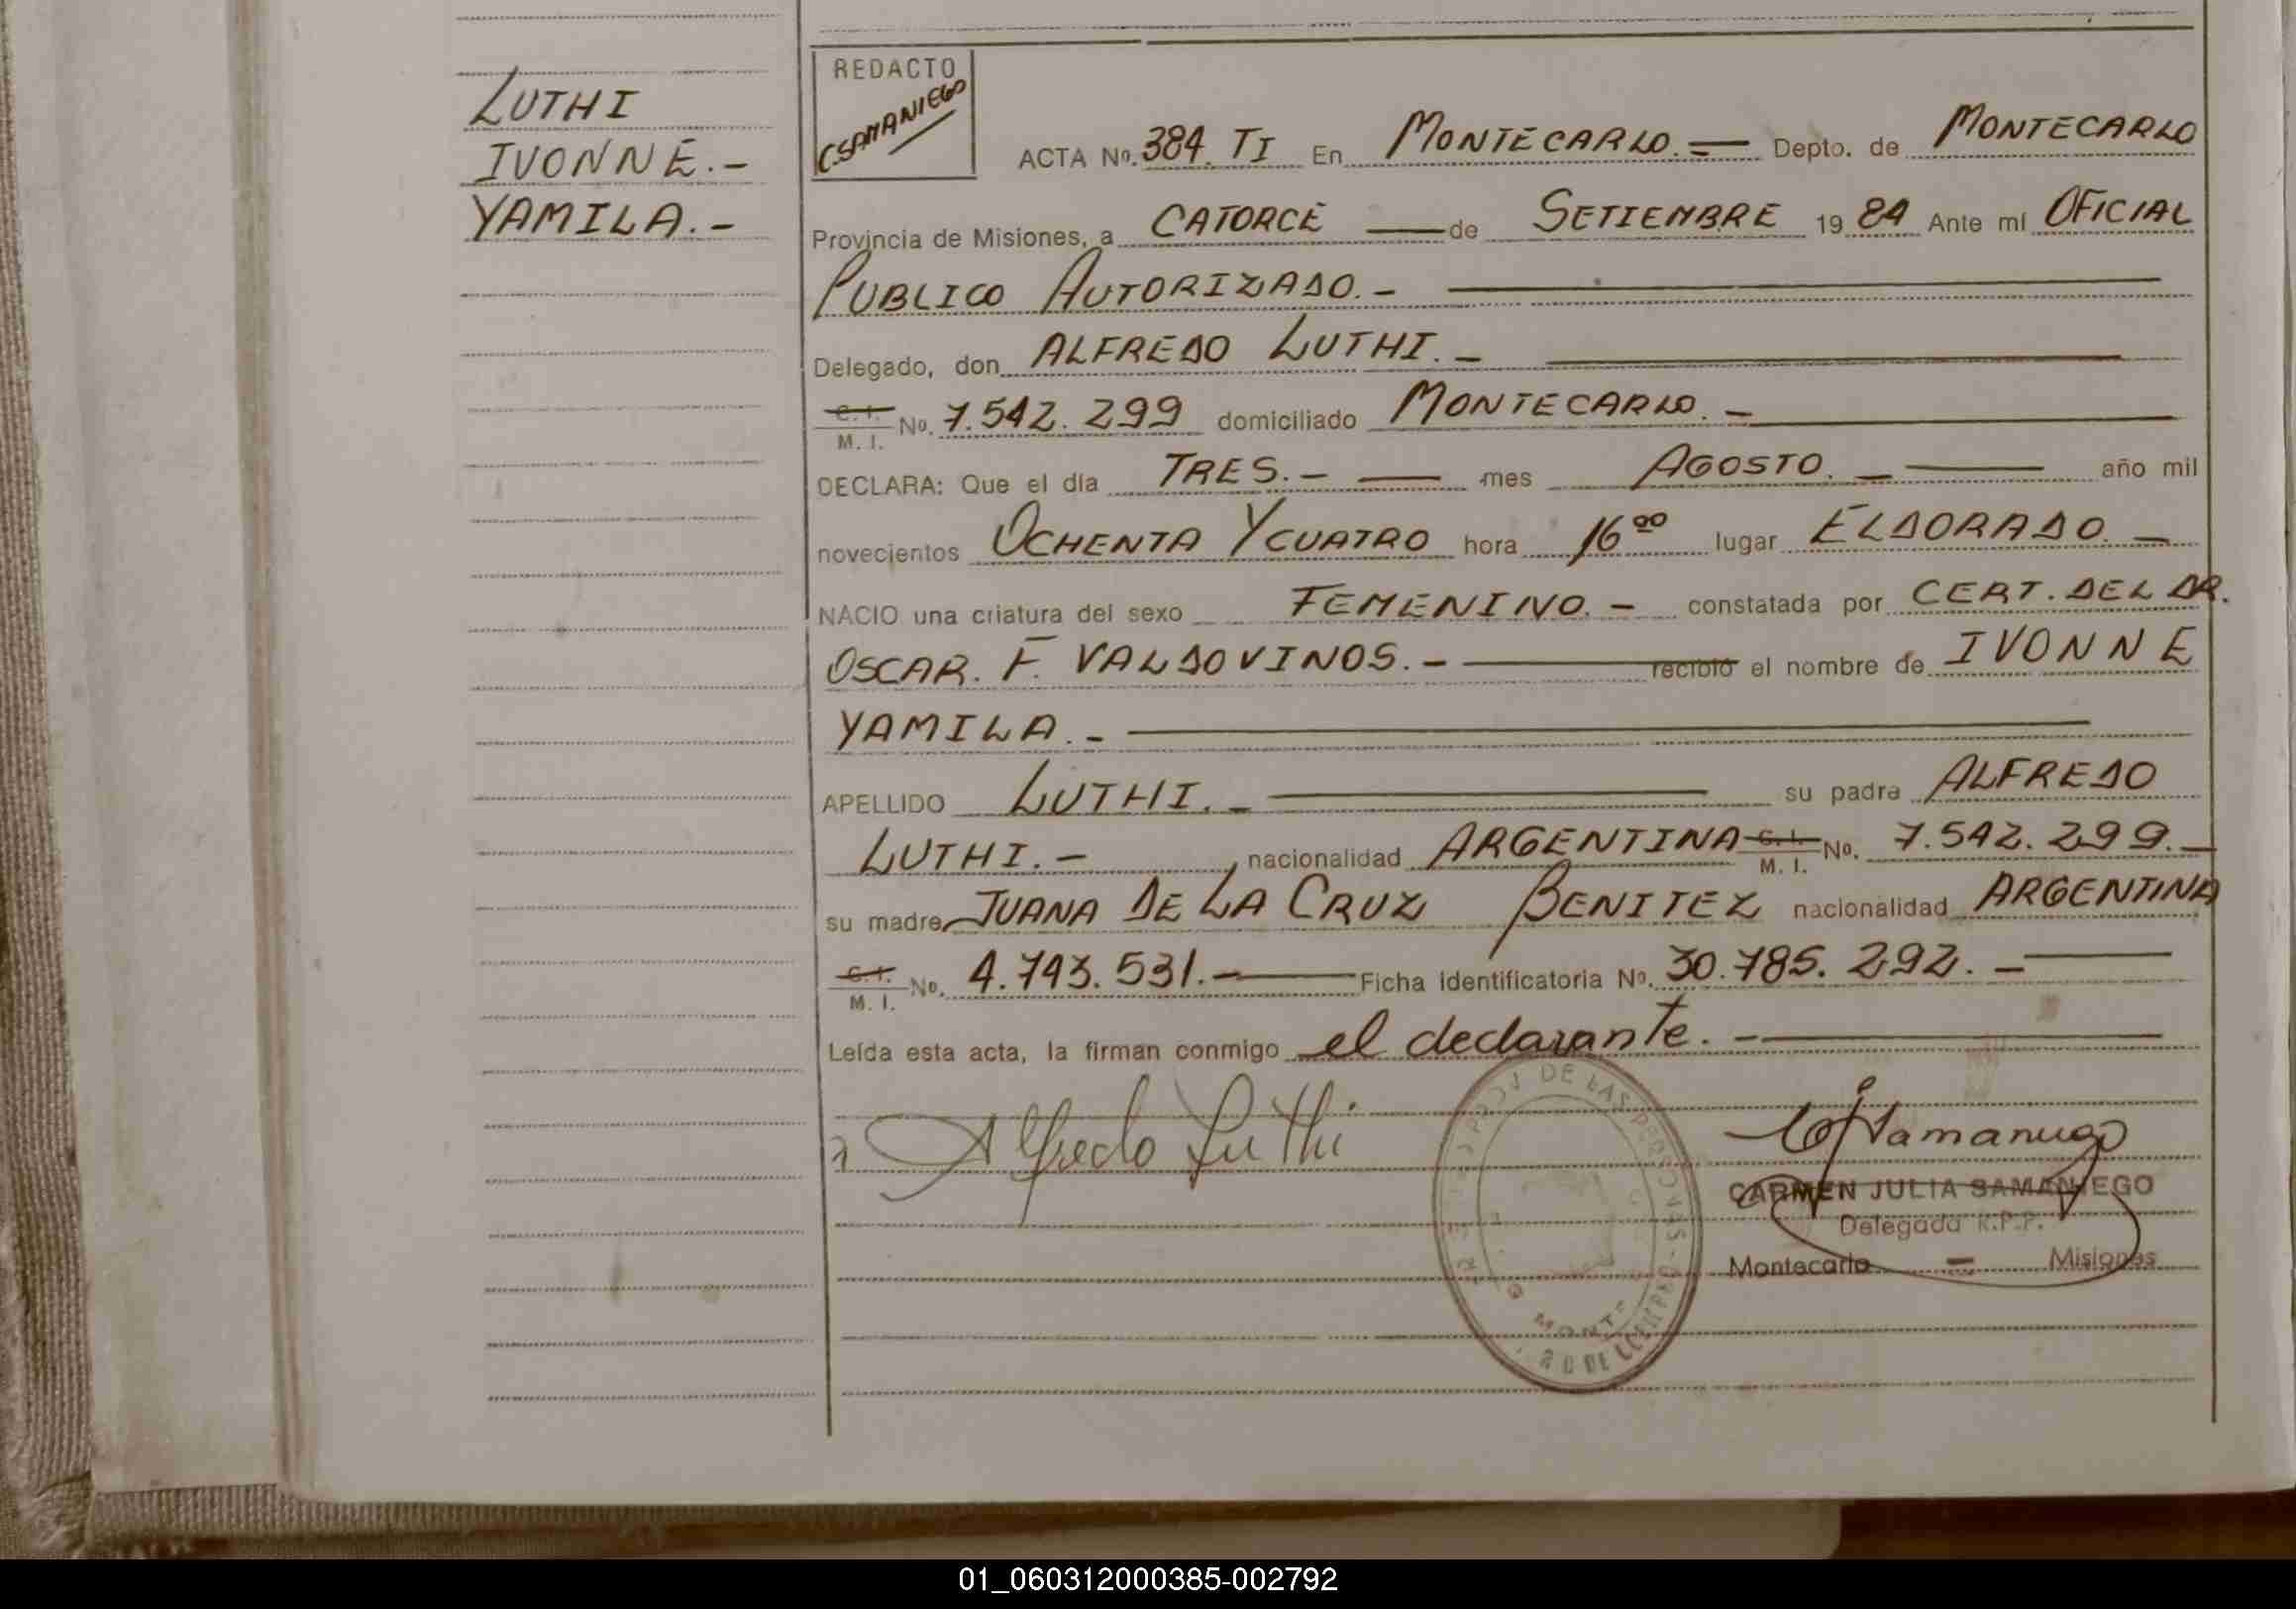 LUTHI
IVONNE.-
YAMILA.-
REDACTO
C.SAMANIEGO
ACTA No. 384. TI En MONTECARLO.= Depto. de MONTECARLO
Provincia de Misiones, a CATORCE — de SETIEMBRE 1984 Ante mí OFICIAL
PUBLICO AUTORIZADO.- —
Delegado, don ALFREDO LUTHI.- —
C. I. M. I. No. 7.542.299 domiciliado MONTECARLO.- —
DECLARA: Que el día TRES.- — mes AGOSTO.- — año mil
novecientos OCHENTA Y CUATRO hora 16 00 lugar ELDORADO.-
NACIO una criatura del sexo FEMENINO.- constatada por CERT. DEL DR.
OSCAR. F. VALDOVINOS.- — recibió el nombre de IVONNE
YAMILA.- —
APELLIDO LUTHI.- — su padre ALFREDO
LUTHI.- nacionalidad ARGENTINA C. I. M. I. No. 7.542.299.-
su madre JUANA DE LA CRUZ BENITEZ nacionalidad ARGENTINA
C. I. M. I. No. 4.743.531.- — Ficha identificatoria No. 30.785.292.- —
Leída esta acta, la firman conmigo el declarante.- —
Alfredo Luthi
CJSamaniego
CARMEN JULIA SAMANIEGO
Delegada R.P.P.
Montecarlo - Misiones
DE LAS PERSONAS
01_060312000385-002792